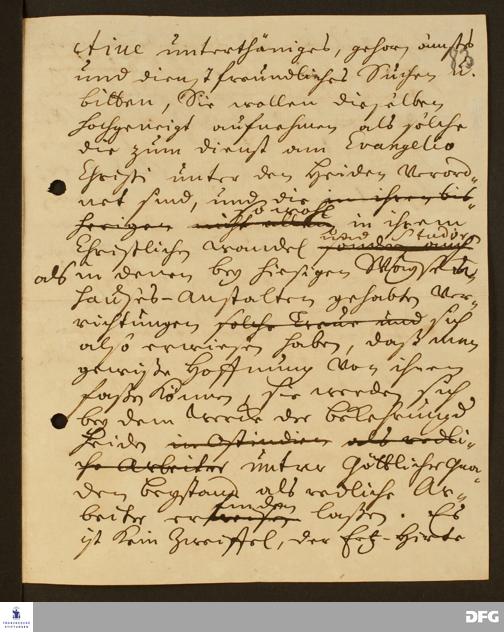 83
eine unterthäniges, gehorsamstes
und dienstfreundliches Suchen u.
bitten, Sie wollen dieselben
hochgeneigt aufnehmen als solche
die zum dienst am Evangelio
Christi unter den Heiden verord-
net sind, und die in ihren bis-
herigen nicht allein so wohl in ihrem
Christlichen wandel sondern auch und Studiis
als in denen bey hiesigen Waysen-
hauses-Anstalten gehabten Ver-
richtungen solche Treue und sich
also erwiesen haben, daß man
gewiße Hoffnung von ihnen
faßen können, sie werden sich
bey dem Wercke der bekehrung der
Heiden in Ostindien als redli-
che Arbeiter unter Göttlicher Gna-
den beystand als redliche Ar-
beiter erweisen finden laßen. Es
ist kein Zweiffel, der Ertz-Hirte
FRANCKESCHE STIFTUNGEN
DFG